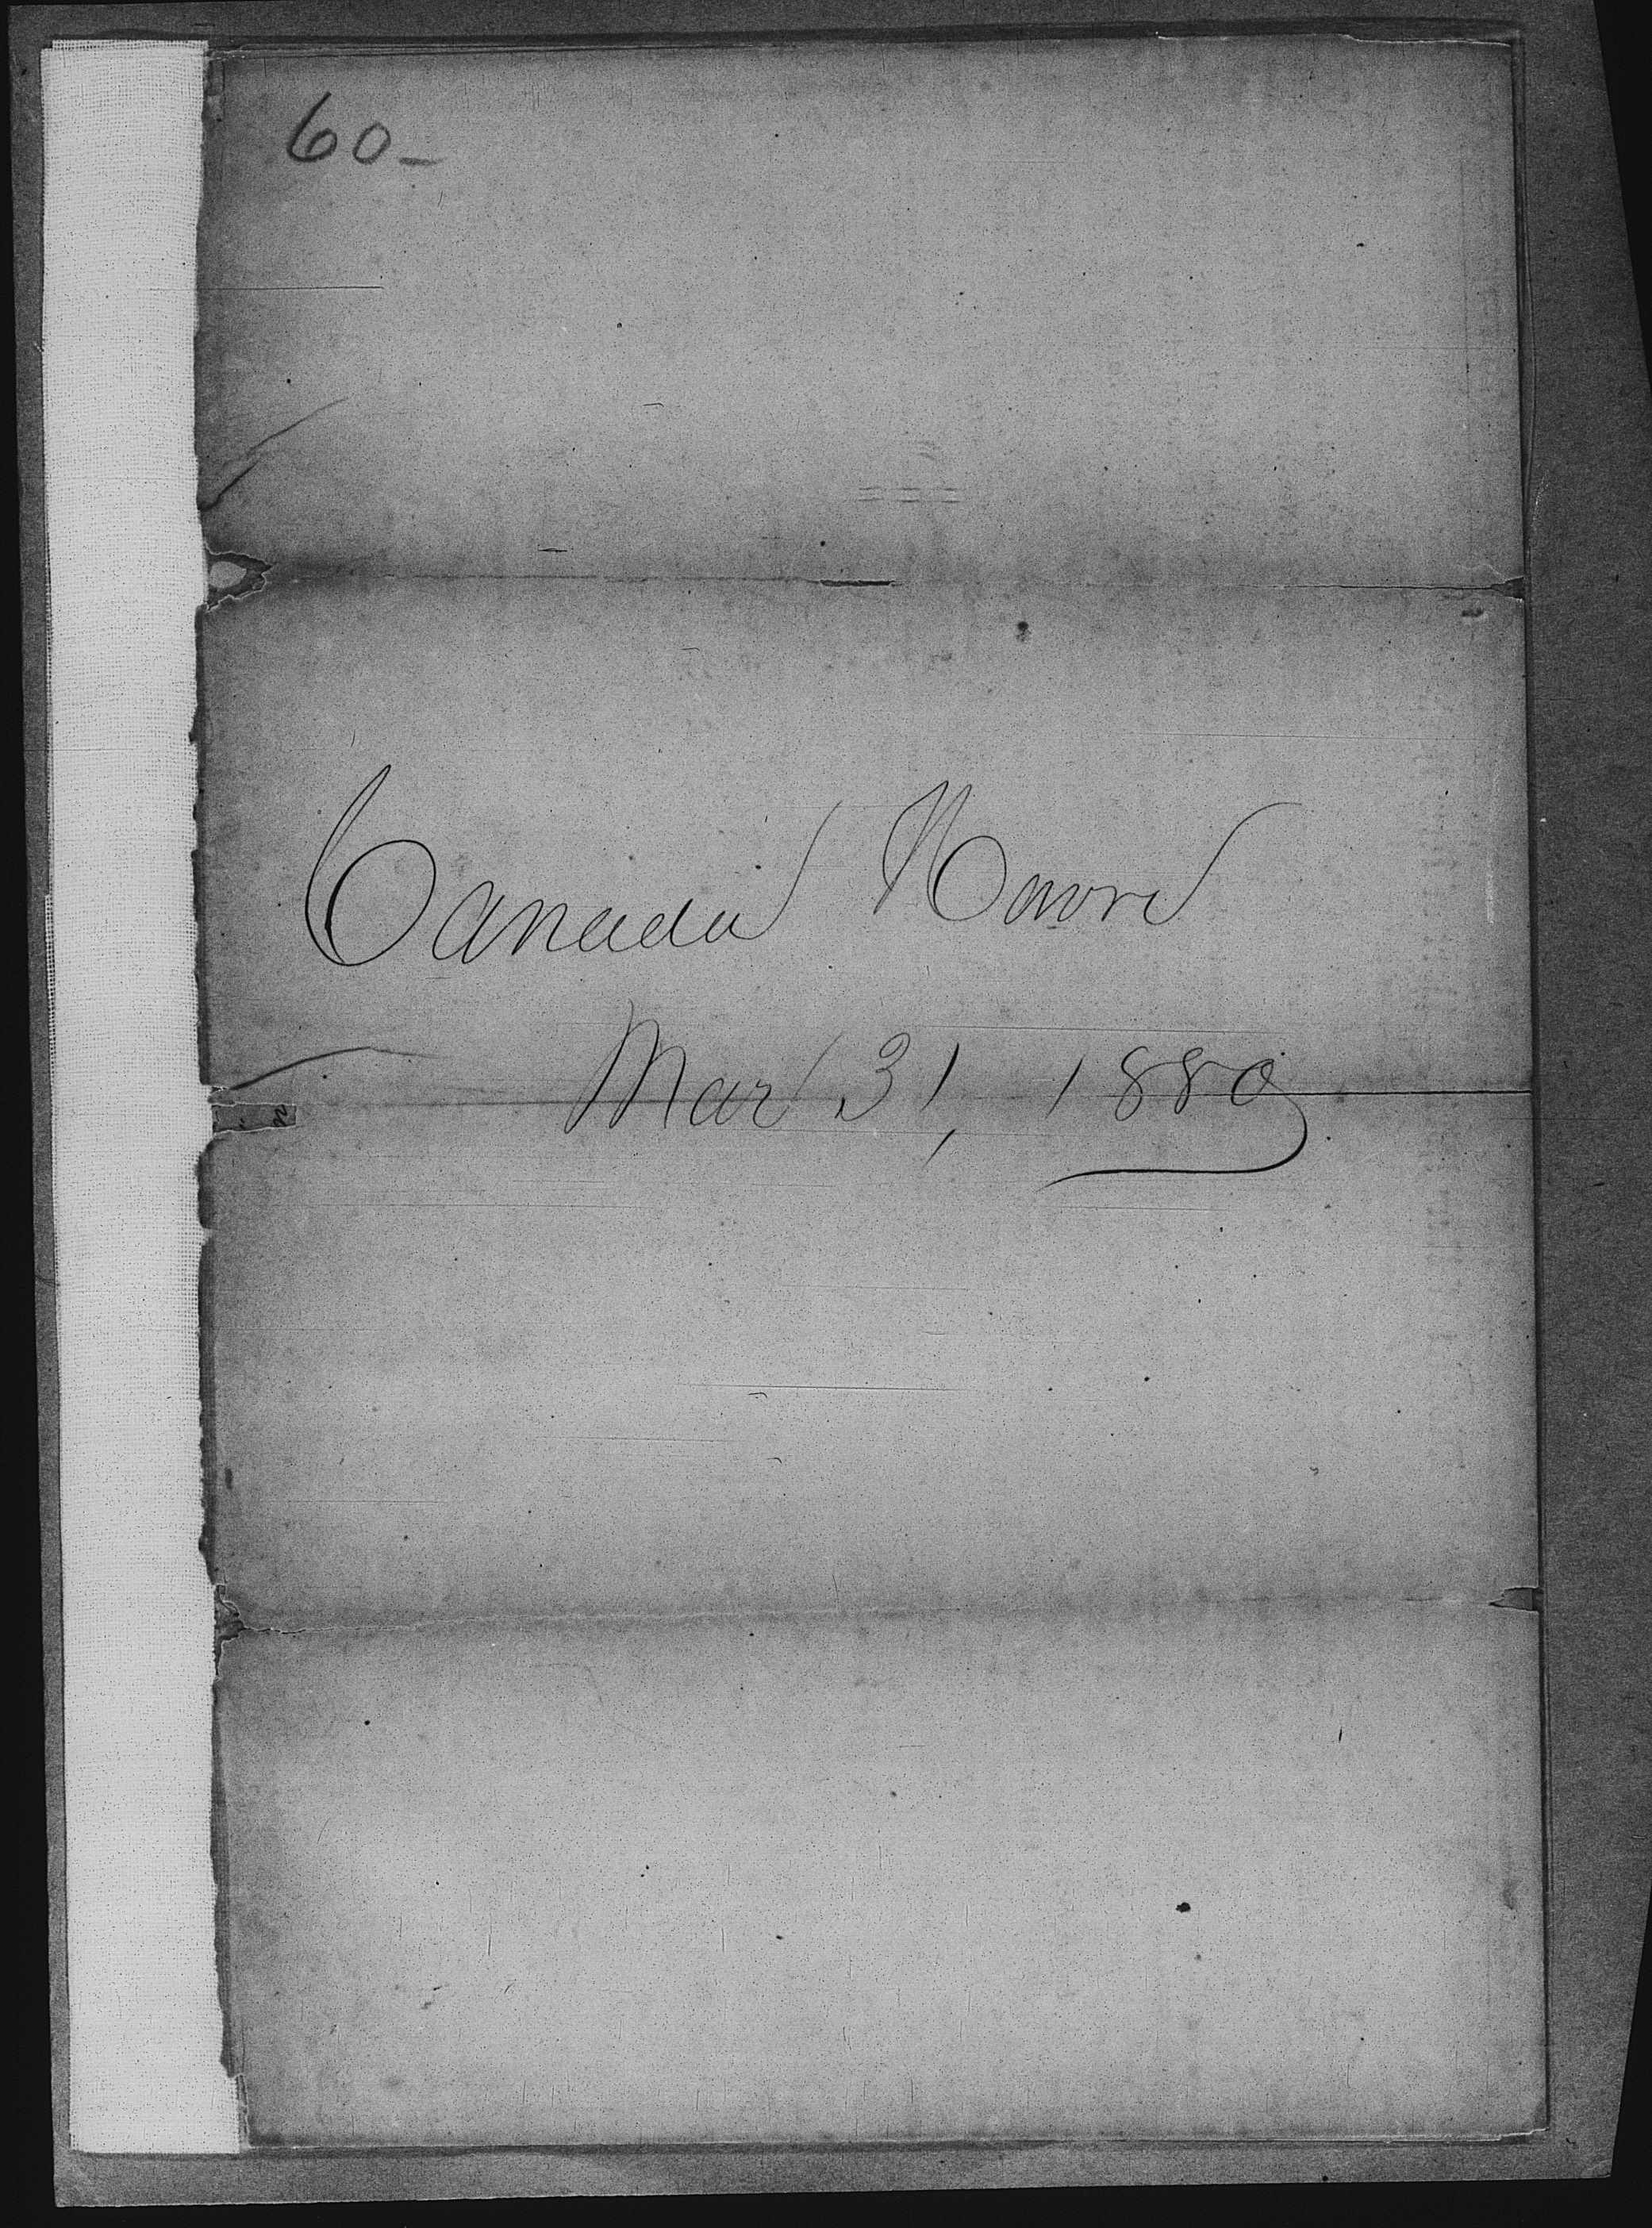 60-
Canada Howre
Mar 31, 1880